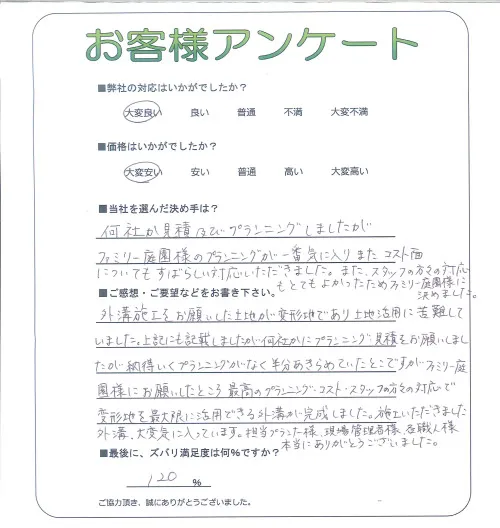 お客様アンケート
■弊社の対応はいかがでしたか？
大変良い 良い 普通 不満 大変不満
■価格はいかがでしたか？
大変安い 安い 普通 高い 大変高い
■当社を選んだ決め手は？
何社か見積及びプランニングしましたが
ファミリー庭園様のプランニングが一番気に入りまたコスト面
についてもすばらしい対応いただきました。また、スタッフの方々の対応
もとてもよかったためファミリー庭園様に
決めました。
■ご感想・ご要望などをお書き下さい。
外溝施工をお願いした土地が変形地であり土地活用に苦難して
いました。上記にも記載しましたが何社かにプランニング見積をお願いしまし
たが納得いくプランニングがなく半分あきらめていたとこですがファミリー庭
園様にお願いしたところ最高のプランニング・コスト・スタッフの方々の対応で
変形地を最大限に活用できる外溝が完成しました。施工いただきました
外溝、大変気に入っています。担当プランナー様、現場管理者様、各職人様
本当にありがとうございました。
■最後に、ズバリ満足度は何%ですか？
120 %
ご協力頂き、誠にありがとうございました。